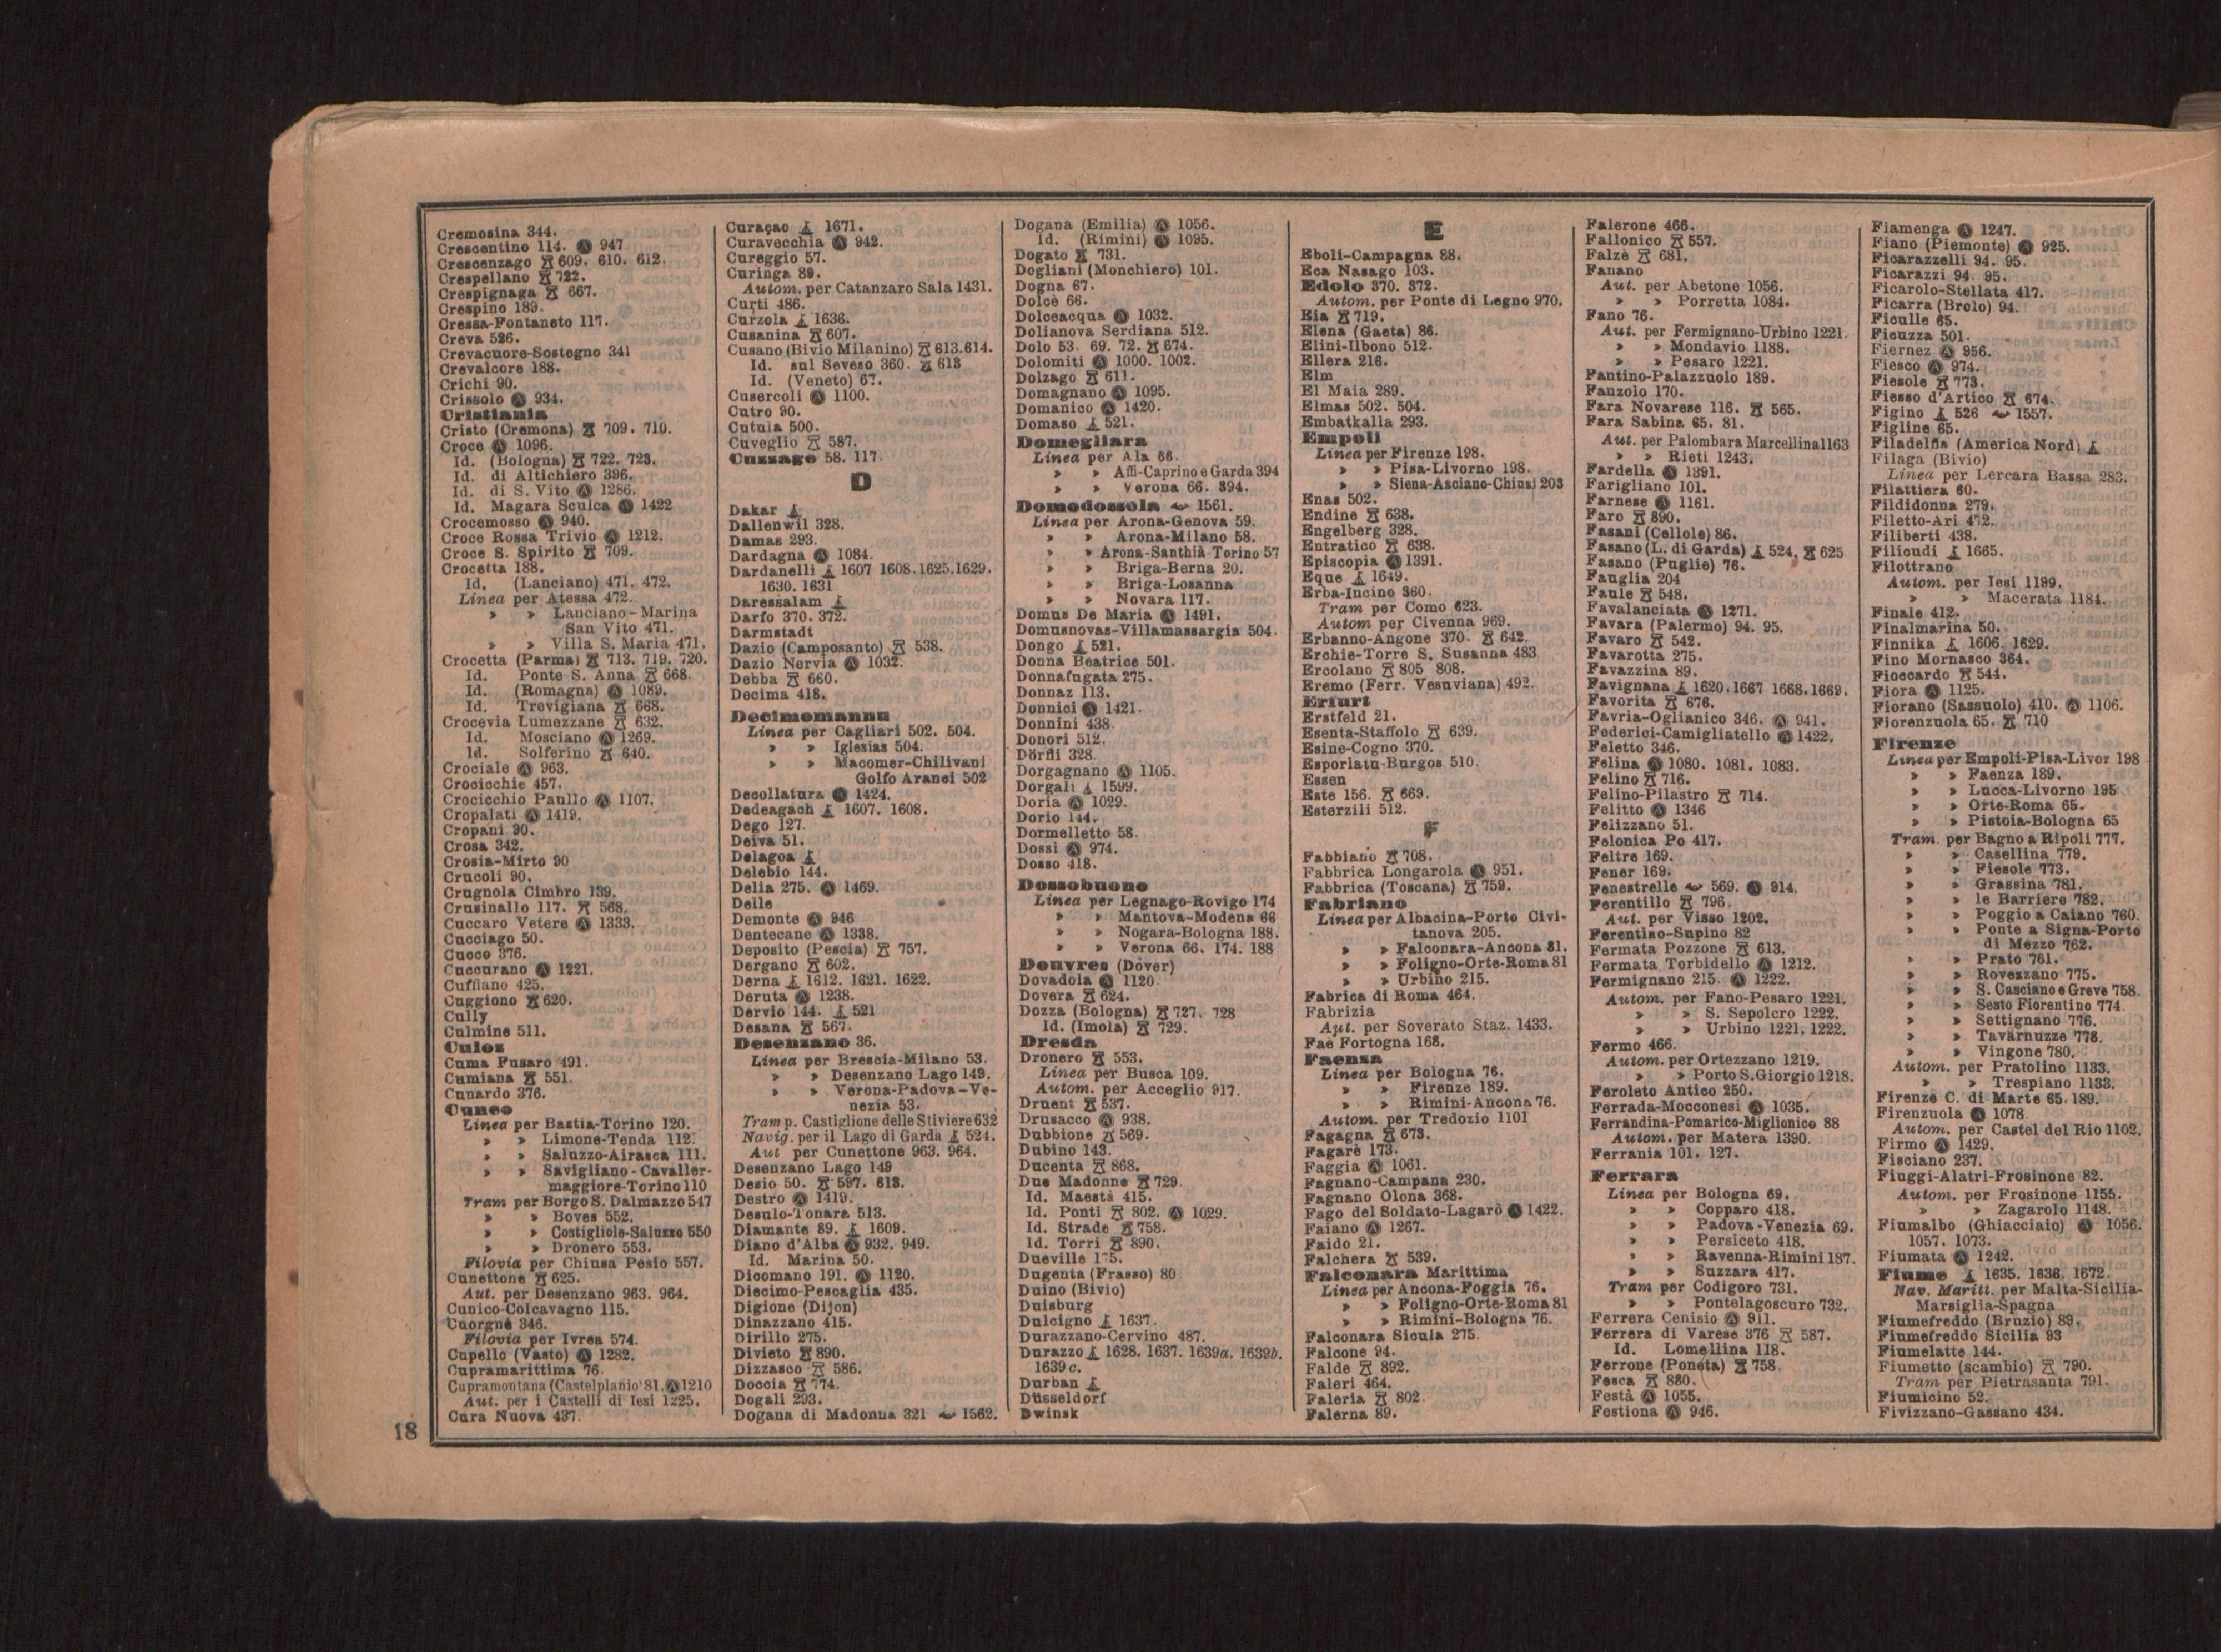 Cremosina 344.
Crescentino 114. Ⓐ 947
Crescenzago 609. 610. 612.
Crespellano 722.
Crespignaga 667.
Crespino 189.
Cressa-Fontaneto 117.
Creva 526.
Crevacuore-Sostegno 341
Crevalcore 188.
Crichi 90.
Crissolo Ⓐ 934.
Cristiania
Cristo (Cremona) 709. 710.
Croce Ⓐ 1096.
Id. (Bologna) 722. 723.
Id. di Altichiero 396.
Id. di S. Vito Ⓐ 1286.
Id. Magara Sculca Ⓐ 1422
Crocemosso Ⓐ 940.
Croce Rossa Trivio Ⓐ 1212.
Croce S. Spirito 709.
Crocetta 188.
Id. (Lanciano) 471. 472.
Linea per Atessa 472.
» » Lanciano-Marina
San Vito 471.
» » Villa S. Maria 471.
Crocetta (Parma) 713. 719. 720.
Id. Ponte S. Anna 668.
Id. (Romagna) Ⓐ 1089.
Id. Trevigiana 668.
Crocevia Lumezzane 632.
Id. Mosciano Ⓐ 1269.
Id. Solferino 640.
Crociale Ⓐ 963.
Crocicchie 457.
Crocicchio Paullo Ⓐ 1107.
Cropalati Ⓐ 1419.
Cropani 90.
Crosa 342.
Crosia-Mirto 90
Crucoli 90.
Crugnola Cimbro 139.
Crusinallo 117. 568.
Cuccaro Vetere Ⓐ 1333.
Cucciago 50.
Cucco 376.
Cuccurano Ⓐ 1221.
Cuffiano 425.
Cuggiono 620.
Cully
Culmine 511.
Culoz
Cuma Fusaro 491.
Cumiana 551.
Cunardo 376.
Cuneo
Linea per Bastia-Torino 120.
» » Limone-Tenda 112.
» » Saluzzo-Airasca 111.
» » Savigliano-Cavaller-
maggiore-Torino 110
Tram per Borgo S. Dalmazzo 547
» » Boves 552.
» » Costigliole-Saluzzo 550
» » Dronero 553.
Filovia per Chiusa Pesio 557.
Cunettone 625.
Aut. per Desenzano 963. 964.
Cunico-Colcavagno 115.
Cuorgnè 346.
Filovia per Ivrea 574.
Cupello (Vasto) Ⓐ 1282.
Cupramarittima 76.
Cupramontana (Castelplanio 81. Ⓐ 1210
Aut. per i Castelli di Iesi 1225.
Cura Nuova 437.
18
Curaçao 1671.
Curavecchia Ⓐ 942.
Cureggio 57.
Curinga 89.
Autom. per Catanzaro Sala 1431.
Curti 486.
Curzola 1636.
Cusanina 607.
Cusano (Bivio Milanino) 613. 614.
Id. sul Seveso 360. 613
Id. (Veneto) 67.
Cusercoli Ⓐ 1100.
Cutro 90.
Cutuia 500.
Cuveglio 587.
Cuzzago 58. 117.
D
Dakar
Dallenwil 328.
Damas 293.
Dardagna Ⓐ 1084.
Dardanelli 1607 1608. 1625. 1629.
1630. 1631
Daressalam
Darfo 370. 372.
Darmstadt
Dazio (Camposanto) 538.
Dazio Nervia Ⓐ 1032.
Debba 660.
Decima 418.
Decimomannu
Linea per Cagliari 502. 504.
» » Iglesias 504.
» » Macomer-Chilivani
Golfo Aranci 502
Decollatura Ⓐ 1424.
Dedeagach 1607. 1608.
Dego 127.
Deiva 51.
Delagoa
Delebio 144.
Delia 275. Ⓐ 1469.
Delle
Demonte Ⓐ 946
Dentecane Ⓐ 1338.
Deposito (Pescia) 757.
Dergano 602.
Derna 1612. 1621. 1622.
Deruta Ⓐ 1238.
Dervio 144. 521
Desana 567.
Desenzano 36.
Linea per Brescia-Milano 53.
» » Desenzano Lago 149.
» » Verona-Padova-Ve-
nezia 53.
Tram p. Castiglione delle Stiviere 632
Navig. per il Lago di Garda 524.
Aut per Cunettone 963. 964.
Desenzano Lago 149
Desio 50. 597. 613.
Destro Ⓐ 1419.
Desulo-Tonara 513.
Diamante 89. 1609.
Diano d'Alba Ⓐ 932. 949.
Id. Marina 50.
Dicomano 191. Ⓐ 1120.
Diecimo-Pescaglia 435.
Digione (Dijon)
Dinazzano 415.
Dirillo 275.
Divieto 890.
Dizzasco 586.
Doccia 774.
Dogali 293.
Dogana di Madonna 321 1562.
Dogana (Emilia) Ⓐ 1056.
Id. (Rimini) Ⓐ 1095.
Dogato 731.
Dogliani (Monchiero) 101.
Dogna 67.
Dolcè 66.
Dolceacqua Ⓐ 1032.
Dolianova Serdiana 512.
Dolo 53. 69. 72. 674.
Dolomiti Ⓐ 1000. 1002.
Dolzago 611.
Domagnano Ⓐ 1095.
Domanico Ⓐ 1420.
Domaso 521.
Domegliara
Linea per Ala 66.
» » Affi-Caprino e Garda 394
» » Verona 66. 394.
Domodossola 1561.
Linea per Arona-Genova 59.
» » Arona-Milano 58.
» » Arona-Santhià-Torino 57
» » Briga-Berna 20.
» » Briga-Losanna
» » Novara 117.
Domus De Maria Ⓐ 1491.
Domusnovas-Villamassargia 504.
Dongo 521.
Donna Beatrice 501.
Donnafugata 275.
Donnaz 113.
Donnici Ⓐ 1421.
Donnini 438.
Donori 512.
Dörfli 328
Dorgagnano Ⓐ 1105.
Dorgali 1599.
Doria Ⓐ 1029.
Dorio 144.
Dormelletto 58.
Dossi Ⓐ 974.
Dosso 418.
Dossobuono
Linea per Legnago-Rovigo 174
» » Mantova-Modena 66
» » Nogara-Bologna 188.
» » Verona 66. 174. 188
Douvres (Dover)
Dovadola Ⓐ 1120.
Dovera 624.
Dozza (Bologna) 727. 728
Id. (Imola) 729.
Dresda
Dronero 553.
Linea per Busca 109.
Autom. per Acceglio 917.
Druent 537.
Drusacco Ⓐ 938.
Dubbione 569.
Dubino 143.
Ducenta 868.
Due Madonne 729
Id. Maestà 415.
Id. Ponti 802. Ⓐ 1029.
Id. Strade 758.
Id. Torri 890.
Dueville 175.
Dugenta (Frasso) 80
Duino (Bivio)
Duisburg
Dulcigno 1637.
Durazzano-Cervino 487.
Durazzo 1628. 1637. 1639a. 1639b.
1639c.
Durban
Düsseldorf
Dwinsk
E
Eboli-Campagna 88.
Eca Nasago 103.
Edolo 370. 372.
Autom. per Ponte di Legno 970.
Eia 719.
Elena (Gaeta) 86.
Elini-Ilbono 512.
Ellera 216.
Elm
El Maia 289.
Elmas 502. 504.
Embatkalla 293.
Empoli
Linea per Firenze 198.
» » Pisa-Livorno 198.
» » Siena-Asciano-Chiusi 203
Enas 502.
Endine 638.
Engelberg 328.
Entratico 638.
Episcopia Ⓐ 1391.
Eque 1649.
Erba-Incino 360.
Tram per Como 623.
Autom per Civenna 969.
Erbanno-Angone 370. 642.
Erchie-Torre S. Susanna 483.
Ercolano 805 808.
Eremo (Ferr. Vesuviana) 492.
Erfurt
Erstfeld 21.
Esenta-Staffolo 639.
Esine-Cogno 370.
Esporlatu-Burgos 510.
Essen
Este 156. 669.
Esterzili 512.
F
Fabbiano 708.
Fabbrica Longarola Ⓐ 951.
Fabbrica (Toscana) 759.
Fabriano
Linea per Albacina-Porto Civi-
tanova 205.
» » Falconara-Ancona 81.
» » Foligno-Orte-Roma 81
» » Urbino 215.
Fabrica di Roma 464.
Fabrizia
Aut. per Soverato Staz. 1433.
Fae Fortogna 168.
Faenza
Linea per Bologna 76.
» » Firenze 189.
» » Rimini-Ancona 76.
Autom. per Tredozio 1101
Fagagna 673.
Fagarè 173.
Faggia Ⓐ 1061.
Fagnano-Campana 230.
Fagnano Olona 368.
Fago del Soldato-Lagarò Ⓐ 1422.
Faiano Ⓐ 1267.
Faido 21.
Falchera 539.
Falconara Marittima
Linea per Ancona-Foggia 76.
» » Foligno-Orte-Roma 81
» » Rimini-Bologna 76.
Falconara Sicula 275.
Falcone 94.
Falde 892.
Faleri 464.
Faleria 802
Falerna 89.
Falerone 466.
Fallonico 557.
Falzè 681.
Fanano
Aut. per Abetone 1056.
» » Porretta 1084.
Fano 76.
Aut. per Fermignano-Urbino 1221.
» » Mondavio 1188.
» » Pesaro 1221.
Fantino-Palazzuolo 189.
Fanzolo 170.
Fara Novarese 116. 565.
Fara Sabina 65. 81.
Aut. per Palombara Marcellina 1163
» » Rieti 1243.
Fardella Ⓐ 1391.
Farigliano 101.
Farnese Ⓐ 1161.
Faro 890.
Fasani (Cellole) 86.
Fasano (L. di Garda) 524. 625
Fasano (Puglie) 76.
Fauglia 204
Faule 548.
Favalanciata Ⓐ 1271.
Favara (Palermo) 94. 95.
Favaro 542.
Favarotta 275.
Favazzina 89.
Favignana 1620. 1667 1668. 1669.
Favorita 676.
Favria-Oglianico 346. Ⓐ 941.
Federici-Camigliatello Ⓐ 1422.
Feletto 346.
Felina Ⓐ 1080. 1081. 1083.
Felino 716.
Felino-Pilastro 714.
Felitto Ⓐ 1346
Felizzano 51.
Felonica Po 417.
Feltre 169.
Fener 169.
Fenestrelle 569. Ⓐ 914.
Ferentillo 796.
Aut. per Visso 1202.
Ferentino-Supino 82
Fermata Pozzone 613.
Fermata Torbidello Ⓐ 1212.
Fermignano 215. Ⓐ 1222.
Autom. per Fano-Pesaro 1221.
» » S. Sepolcro 1222.
» » Urbino 1221. 1222.
Fermo 466.
Autom. per Ortezzano 1219.
» » Porto S. Giorgio 1218.
Feroleto Antico 250.
Ferrada-Mocconesi Ⓐ 1035.
Ferrandina-Pomarico-Miglionico 88
Autom. per Matera 1390.
Ferrania 101. 127.
Ferrara
Linea per Bologna 69.
» » Copparo 418.
» » Padova-Venezia 69.
» » Persiceto 418.
» » Ravenna-Rimini 187.
» » Suzzara 417.
Tram per Codigoro 731.
» » Pontelagoscuro 732.
Ferrera Cenisio Ⓐ 911.
Ferrera di Varese 376 587.
Id. Lomellina 118.
Ferrone (Poneta) 758
Fesca 880.
Festà Ⓐ 1055.
Festiona Ⓐ 946.
Fiamenga Ⓐ 1247.
Fiano (Piemonte) Ⓐ 925.
Ficarazzelli 94. 95.
Ficarazzi 94. 95.
Ficarolo-Stellata 417.
Ficarra (Brolo) 94.
Ficulle 65.
Ficuzza 501.
Fiernez Ⓐ 956.
Fiesco Ⓐ 974.
Fiesole 773.
Fiesso d'Artico 674.
Figino 526 1557.
Figline 65.
Filadelfia (America Nord)
Filaga (Bivio)
Linea per Lercara Bassa 283.
Filattiera 60.
Fildidonna 279.
Filetto-Ari 472.
Filiberti 438.
Filicudi 1665.
Filottrano
Autom. per Iesi 1199.
» » Macerata 1184.
Finale 412.
Finalmarina 50.
Finnika 1606. 1629.
Fino Mornasco 364.
Fioccardo 544.
Fiora Ⓐ 1125.
Fiorano (Sassuolo) 410. Ⓐ 1106.
Fiorenzuola 65. 710
Firenze
Linea per Empoli-Pisa-Livor 198
» » Faenza 189.
» » Lucca-Livorno 195
» » Orte-Roma 65.
» » Pistoia-Bologna 65
Tram. per Bagno a Ripoli 777.
» » Casellina 779.
» » Fiesole 773.
» » Grassina 781.
» » le Barriere 782.
» » Poggio a Caiano 760.
» » Ponte a Signa-Porto
di Mezzo 762.
» » Prato 761.
» » Rovezzano 775.
» » S. Casciano e Greve 758.
» » Sesto Fiorentino 774.
» » Settignano 776.
» » Tavarnuzze 778.
» » Vingone 780.
Autom. per Pratolino 1133.
» » Trespiano 1133.
Firenze C. di Marte 65. 189.
Firenzuola Ⓐ 1078
Autom. per Castel del Rio 1102.
Firmo Ⓐ 1429.
Fisciano 237.
Fiuggi-Alatri-Frosinone 82.
Autom. per Frosinone 1155.
» » Zagarolo 1148.
Fiumalbo (Ghiacciaio) Ⓐ 1056.
1057. 1073.
Fiumata Ⓐ 1242.
Fiume 1635. 1636. 1672.
Nav. Maritt. per Malta-Sicilia-
Marsiglia-Spagna
Fiumefreddo (Bruzio) 89.
Fiumefreddo Sicilia 93
Fiumelatte 144.
Fiumetto (scambio) 790.
Tram per Pietrasanta 791.
Fiumicino 52.
Fivizzano-Gassano 434.